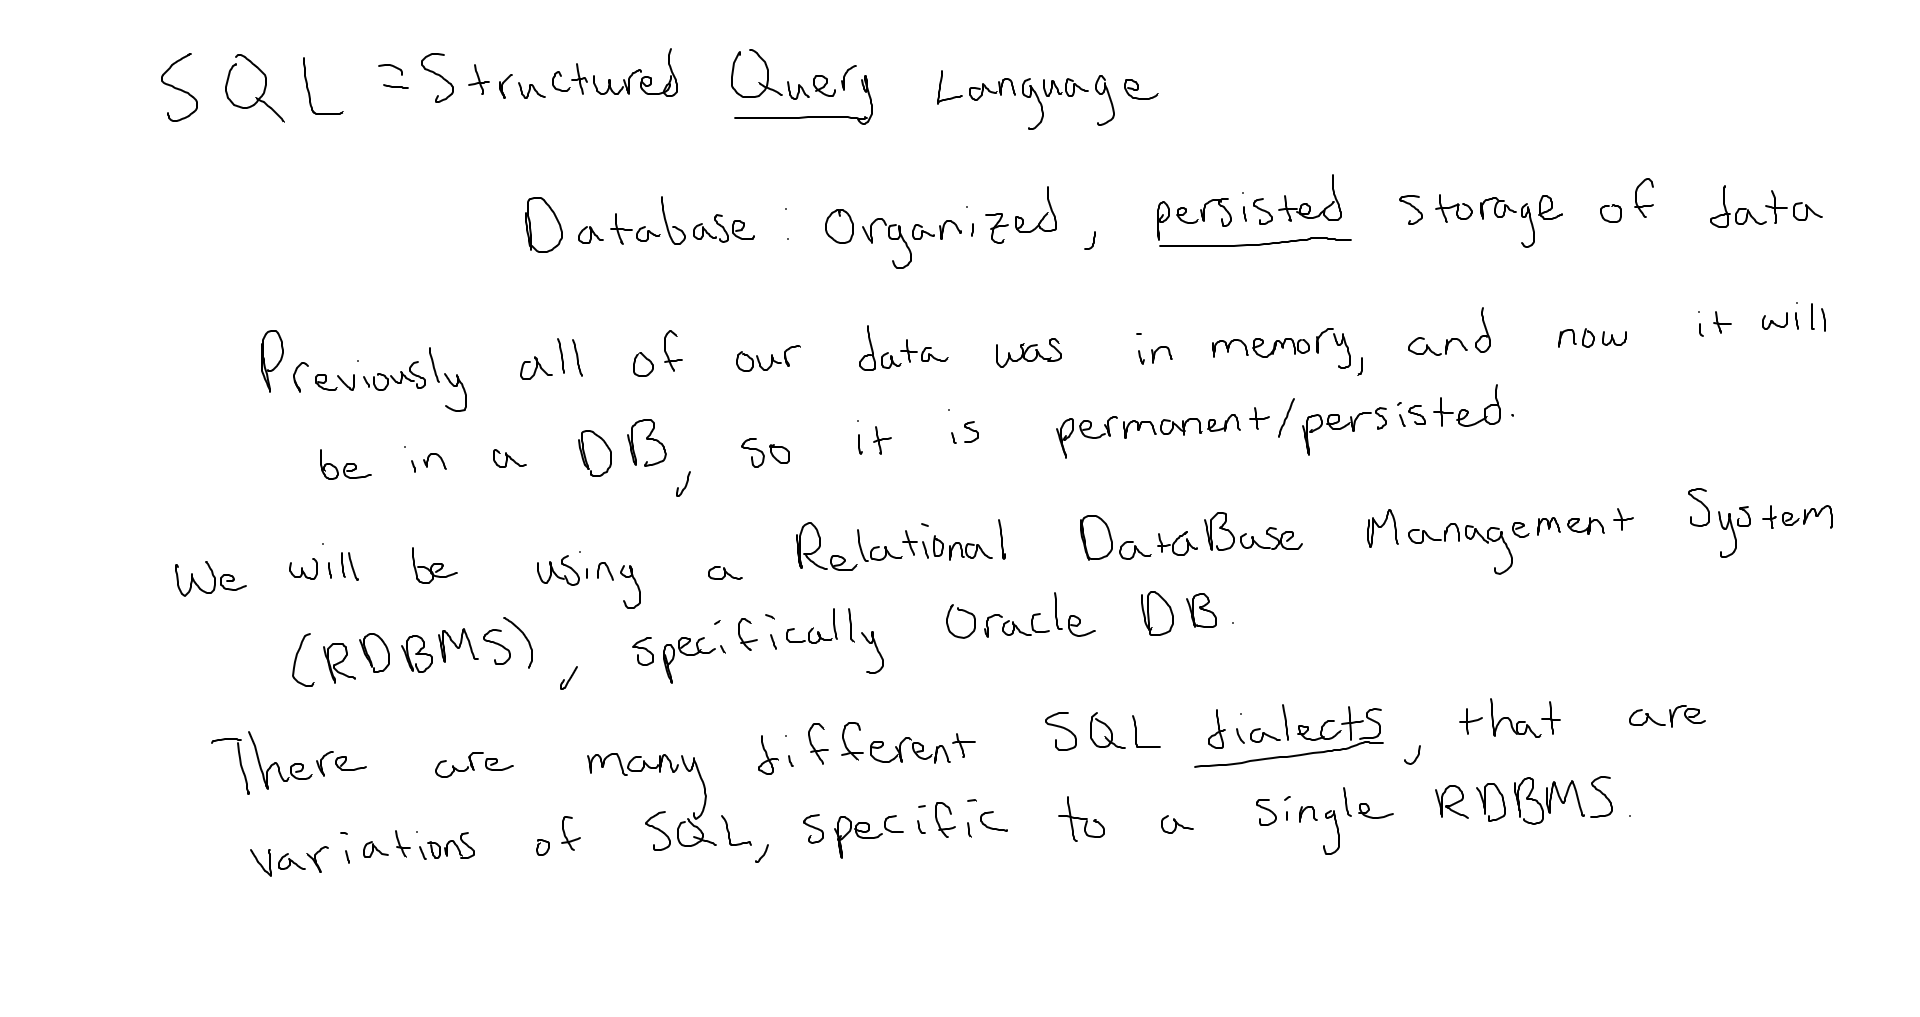 SQL = Structured Query Language
Database: Organized, persisted storage of data
Previously all of our data was in memory, and now it will
be in a DB, so it is permanent/persisted.
We will be using a Relational DataBase Management System
(RDBMS), specifically Oracle DB.
There are many different SQL dialects, that are
variations of SQL, specific to a single RDBMS.